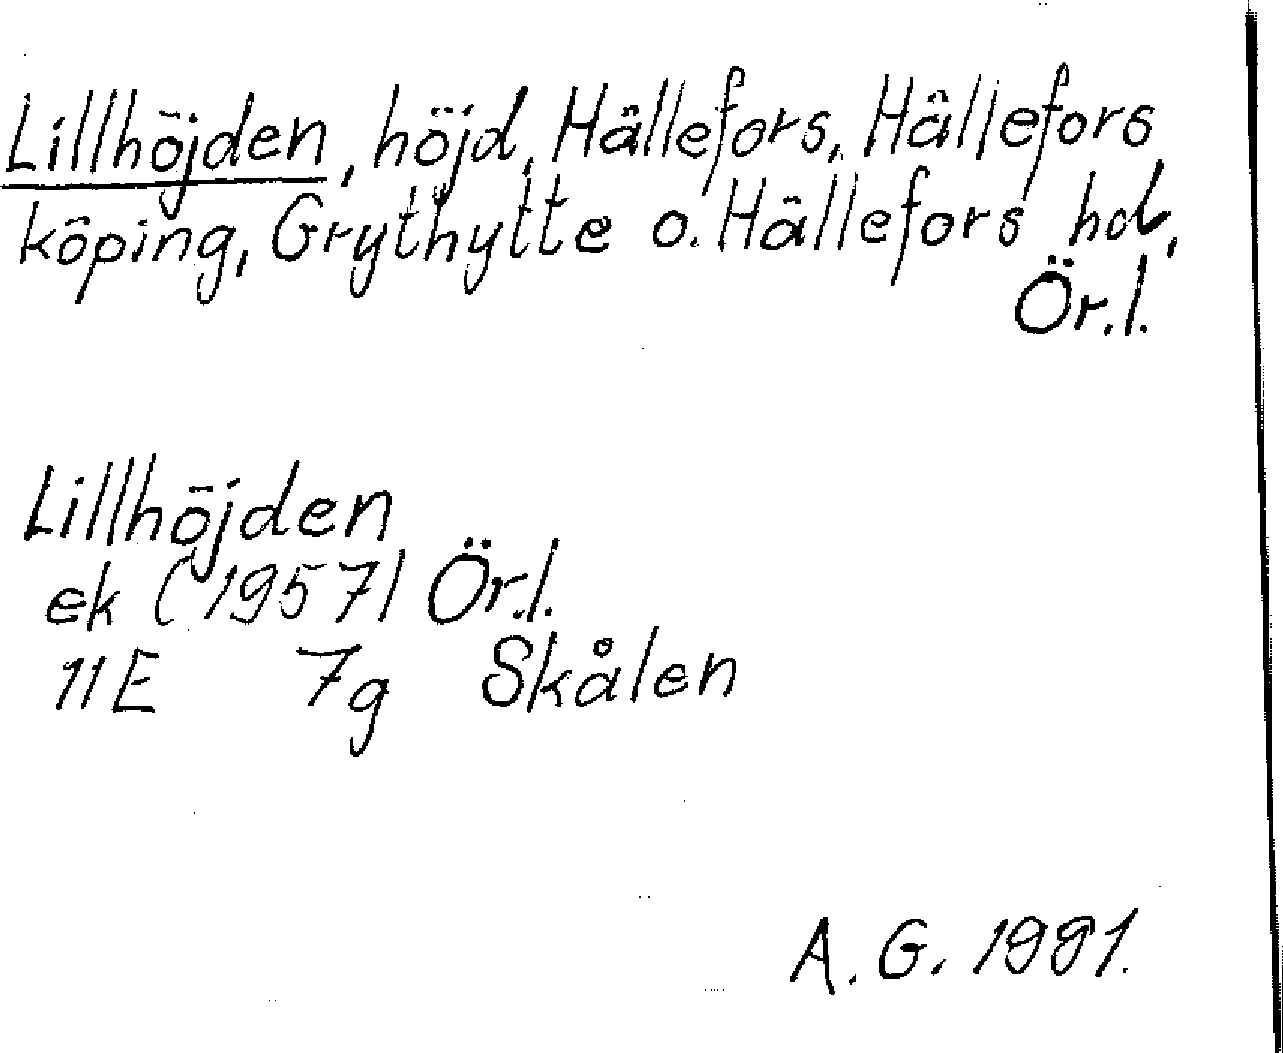 Lillhöjden, höjd, Hällefors, Hällefors
köping, Grythytte o. Hällefors hd,
Ör.l.
Lillhöjden
ek (1957) Ör.l.
11E 7g Skålen
A. G. 1991.